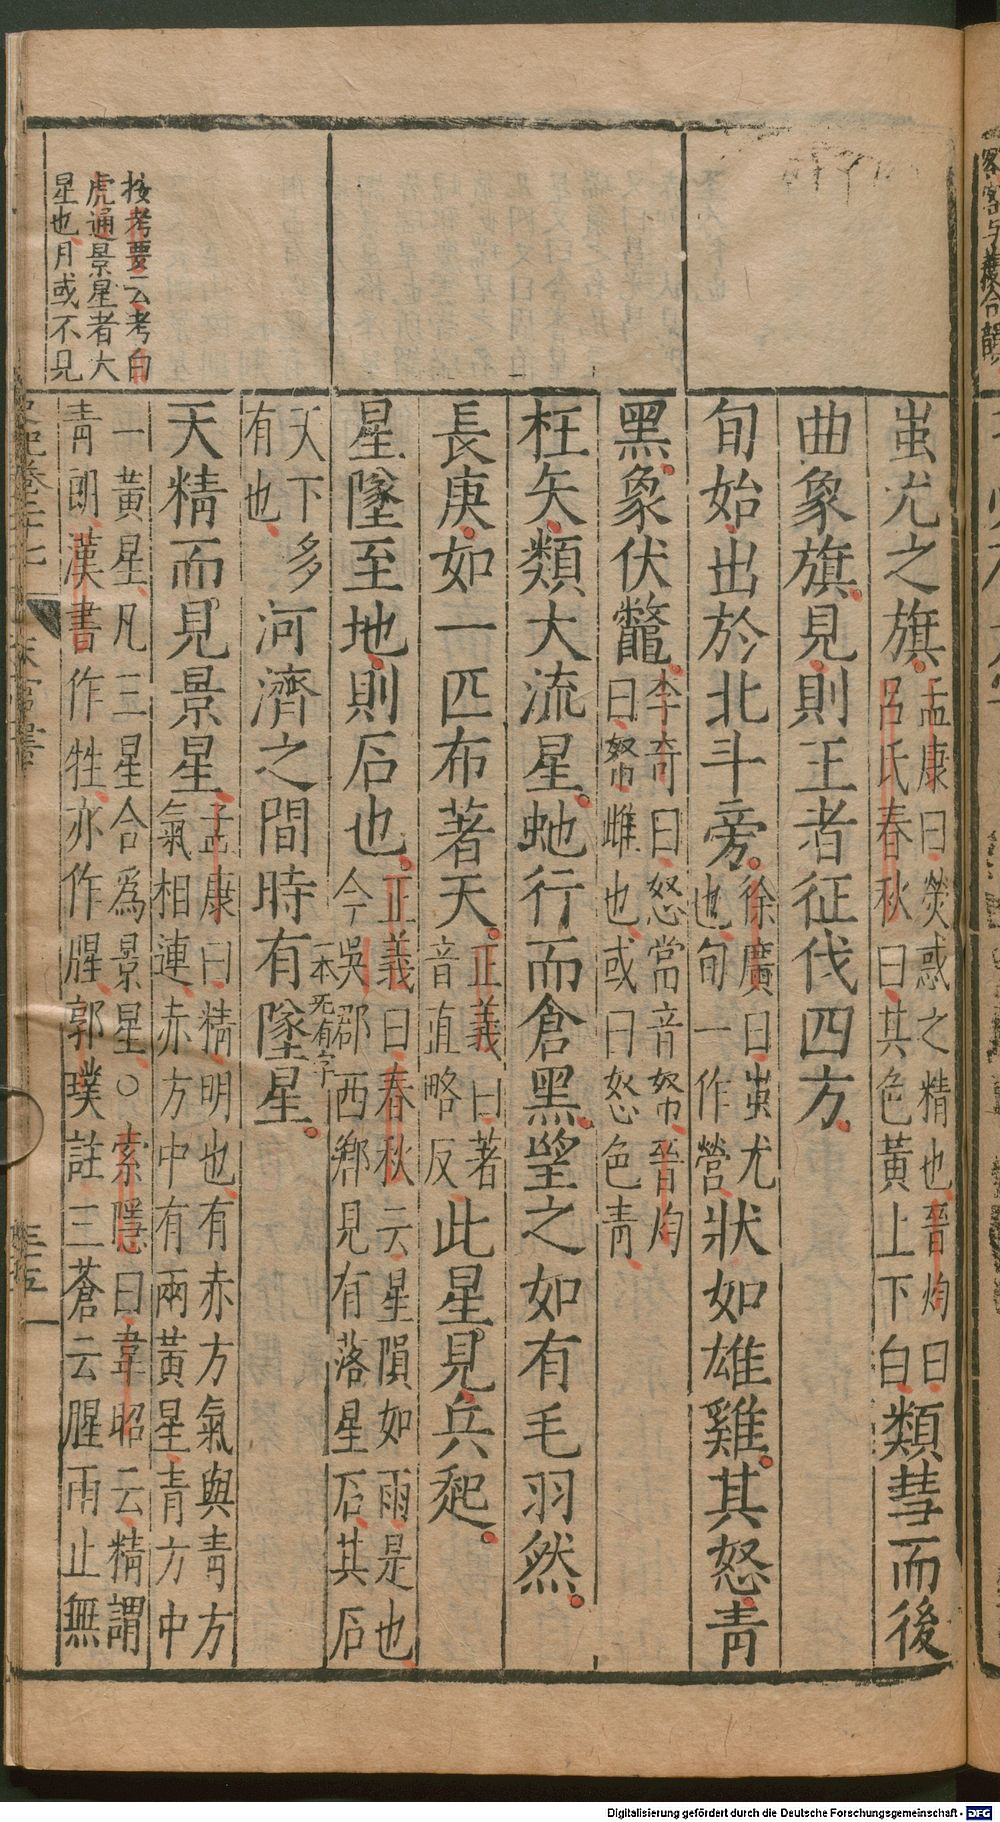 蚩尤之旗孟康曰熒惑之精也晉灼曰
呂氏春秋曰其色黃上下白類彗而後
曲象旗見則王者征伐四方
旬始出於北斗旁徐廣曰蚩尤
也旬一作營狀如雄雞其怒青
黑象伏鼈李奇曰怒當音帑晉灼
曰帑雌也或曰怒色青
枉矢類大流星虵行而倉黑望之如有毛羽然
長庚如一匹布著天正義曰著
音直略反此星見兵起
星墜至地則石也正義曰春秋云星隕如雨是也
今吳郡西鄉見有落星石其石
天下多
有也河濟之間時有墜星
一本无有字
天精而見景星孟康曰精明也有赤方氣與青方
氣相連赤方中有兩黃星青方中
一黃星凡三星合爲景星○索隱曰韋昭云精謂
青朗漢書作甠亦作暒郭璞註三蒼云暒雨止無
按考要云考白
虎通景星者大
星也月或不見
史記卷二十七
天官書
三十五
Digitalisierung gefördert durch die Deutsche Forschungsgemeinschaft - DFG